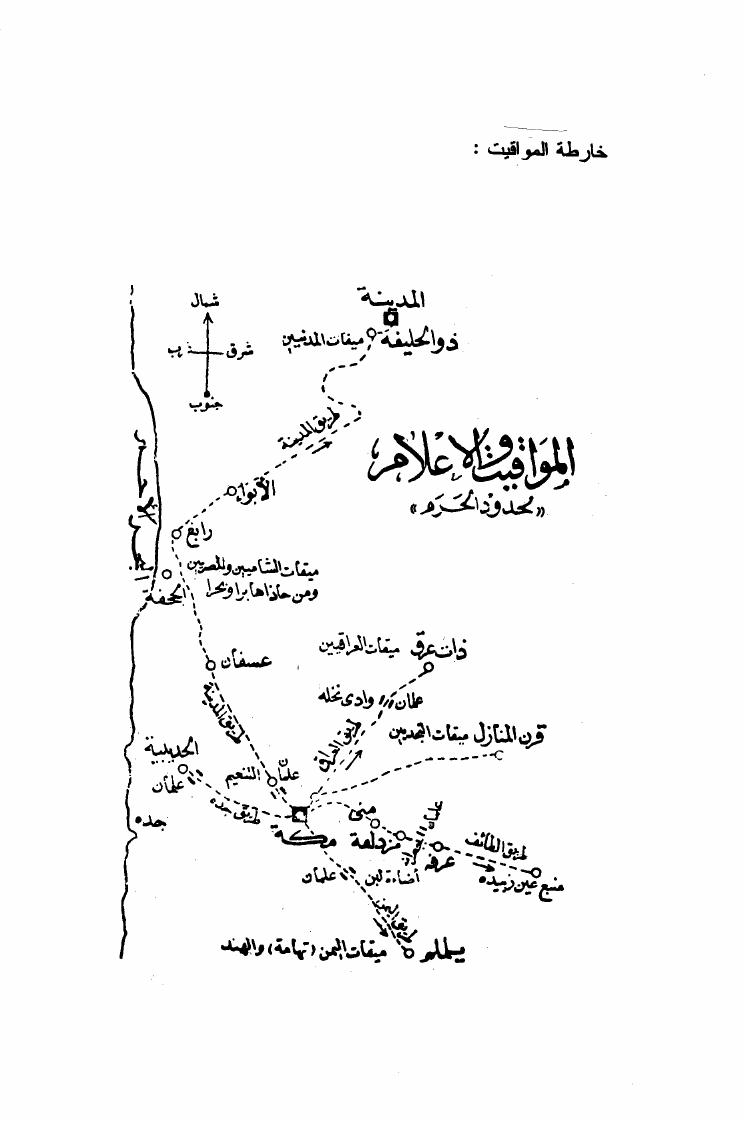 خارطة المواقيت :
شمال
شرق
جنوب
المدينة
ذوالحليفة ميقات المدنيين
طريق المدينة
المواقيت والاعلام
«محدود الحرم»
الأبواء
رابغ
ميقات الشاميين والمصريين
ومن حاذاها برا وبحرا
الجحفة
عسفان
طريق المدينة
ذات عرق ميقات العراقيين
علمان وادى نخله
طريق العراق
قرن المنازل ميقات النجديين
الحديبية
علمان
التنعيم
علمان
طريق جده
جده
مكة
منى
مزدلفة
علمان
عرفه
طريق الطائف
منبع عين زبيده
أضاءة لبن
علمان
طريق اليمن
يلملم ميقات اليمن (تهامة) والهند